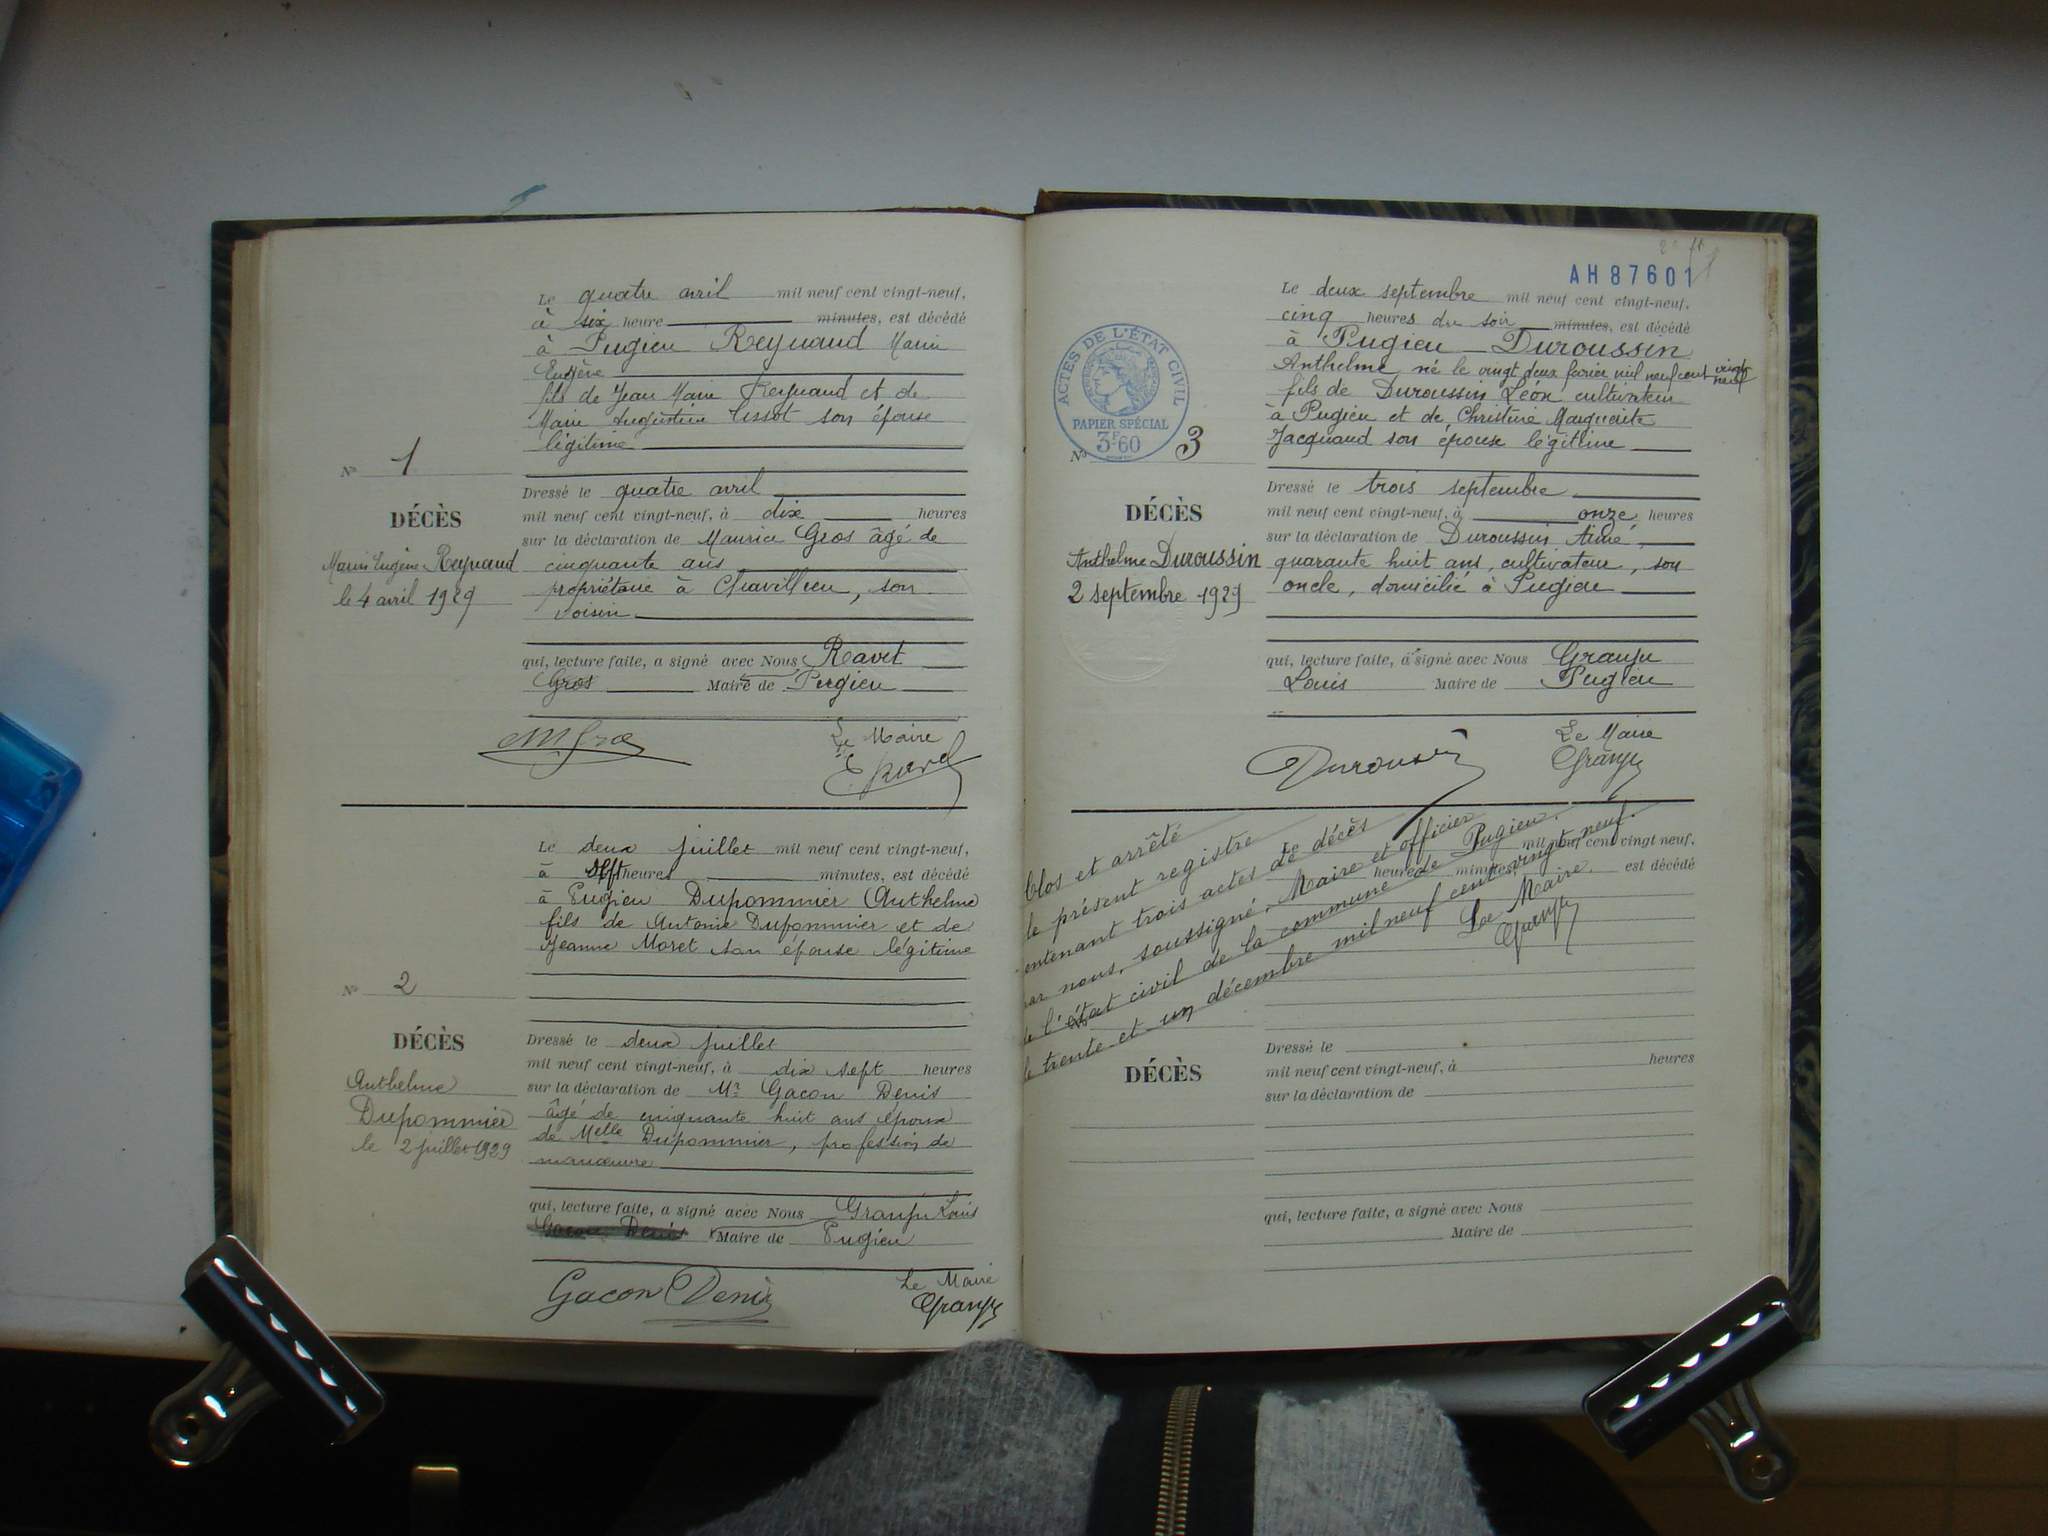 Le quatre avril mil neuf cent vingt-neuf,
à six heure minutes, est décédé
à Pugieu Reynaud Marin
Eugène
fils de Jean Marie Reynaud et de
Marie Augustine Tissot son épouse
légitime
N° 1
DÉCÈS
Marin Eugène Reynaud
le 4 avril 1929
Dressé le quatre avril
mil neuf cent vingt-neuf, à dix heures
sur la déclaration de Maurice Gros âgé de
cinquante ans
propriétaire à Chavillieu, son
voisin
qui, lecture faite, a signé avec Nous Ravet
Gros Maire de Pugieu
Le Maire
N° 2
DÉCÈS
Anthelme
Dupommier
le 2 juillet 1929
Le deux juillet mil neuf cent vingt-neuf,
à sept heures minutes, est décédé
à Pugieu Dupommier (Anthelme
fils de Antoine Dupommier et de
Jeanne Moret son épouse légitime
Dressé le deux juillet
mil neuf cent vingt-neuf, à dix sept heures
sur la déclaration de Mr Gacon Denis
âgé de cinquante huit ans époux
de Melle Dupommier, profession de
manœuvre
qui, lecture faite, a signé avec Nous Granju Louis
Gacon Denis Maire de Pugieu
Gacon Denis
Le Maire
Granju
AH 87601
ACTES DE L'ÉTAT CIVIL
PAPIER SPÉCIAL
3F60
Le deux septembre mil neuf cent vingt-neuf,
cinq heures du soir minutes, est décédé
à Pugieu Duroussin
Anthelme né le vingt deux février mil neuf cent vingt neuf
fils de Duroussin Léon cultivateur
à Pugieu et de Christine Marguerite
Jacquand son épouse légitime
N° 3
DÉCÈS
Anthelme Duroussin
2 septembre 1929
Dressé le trois septembre
mil neuf cent vingt-neuf, à onze heures
sur la déclaration de Duroussin Aimé,
quarante huit ans, cultivateur, son
oncle, domicilié à Pugieu
qui, lecture faite, a signé avec Nous Granju
Louis Maire de Pugieu
Duroussin
Le Maire
Granju
Clos et arrêté
le présent registre
contenant trois actes de décès
par nous, soussigné, Maire et officier
de l'état civil de la commune de Pugieu.
le trente et un décembre mil neuf cent vingt neuf.
Le Maire
Granju
Le mil neuf cent vingt neuf,
heures minutes, est décédé
DÉCÈS
Dressé le
mil neuf cent vingt-neuf, à heures
sur la déclaration de
qui, lecture faite, a signé avec Nous
Maire de